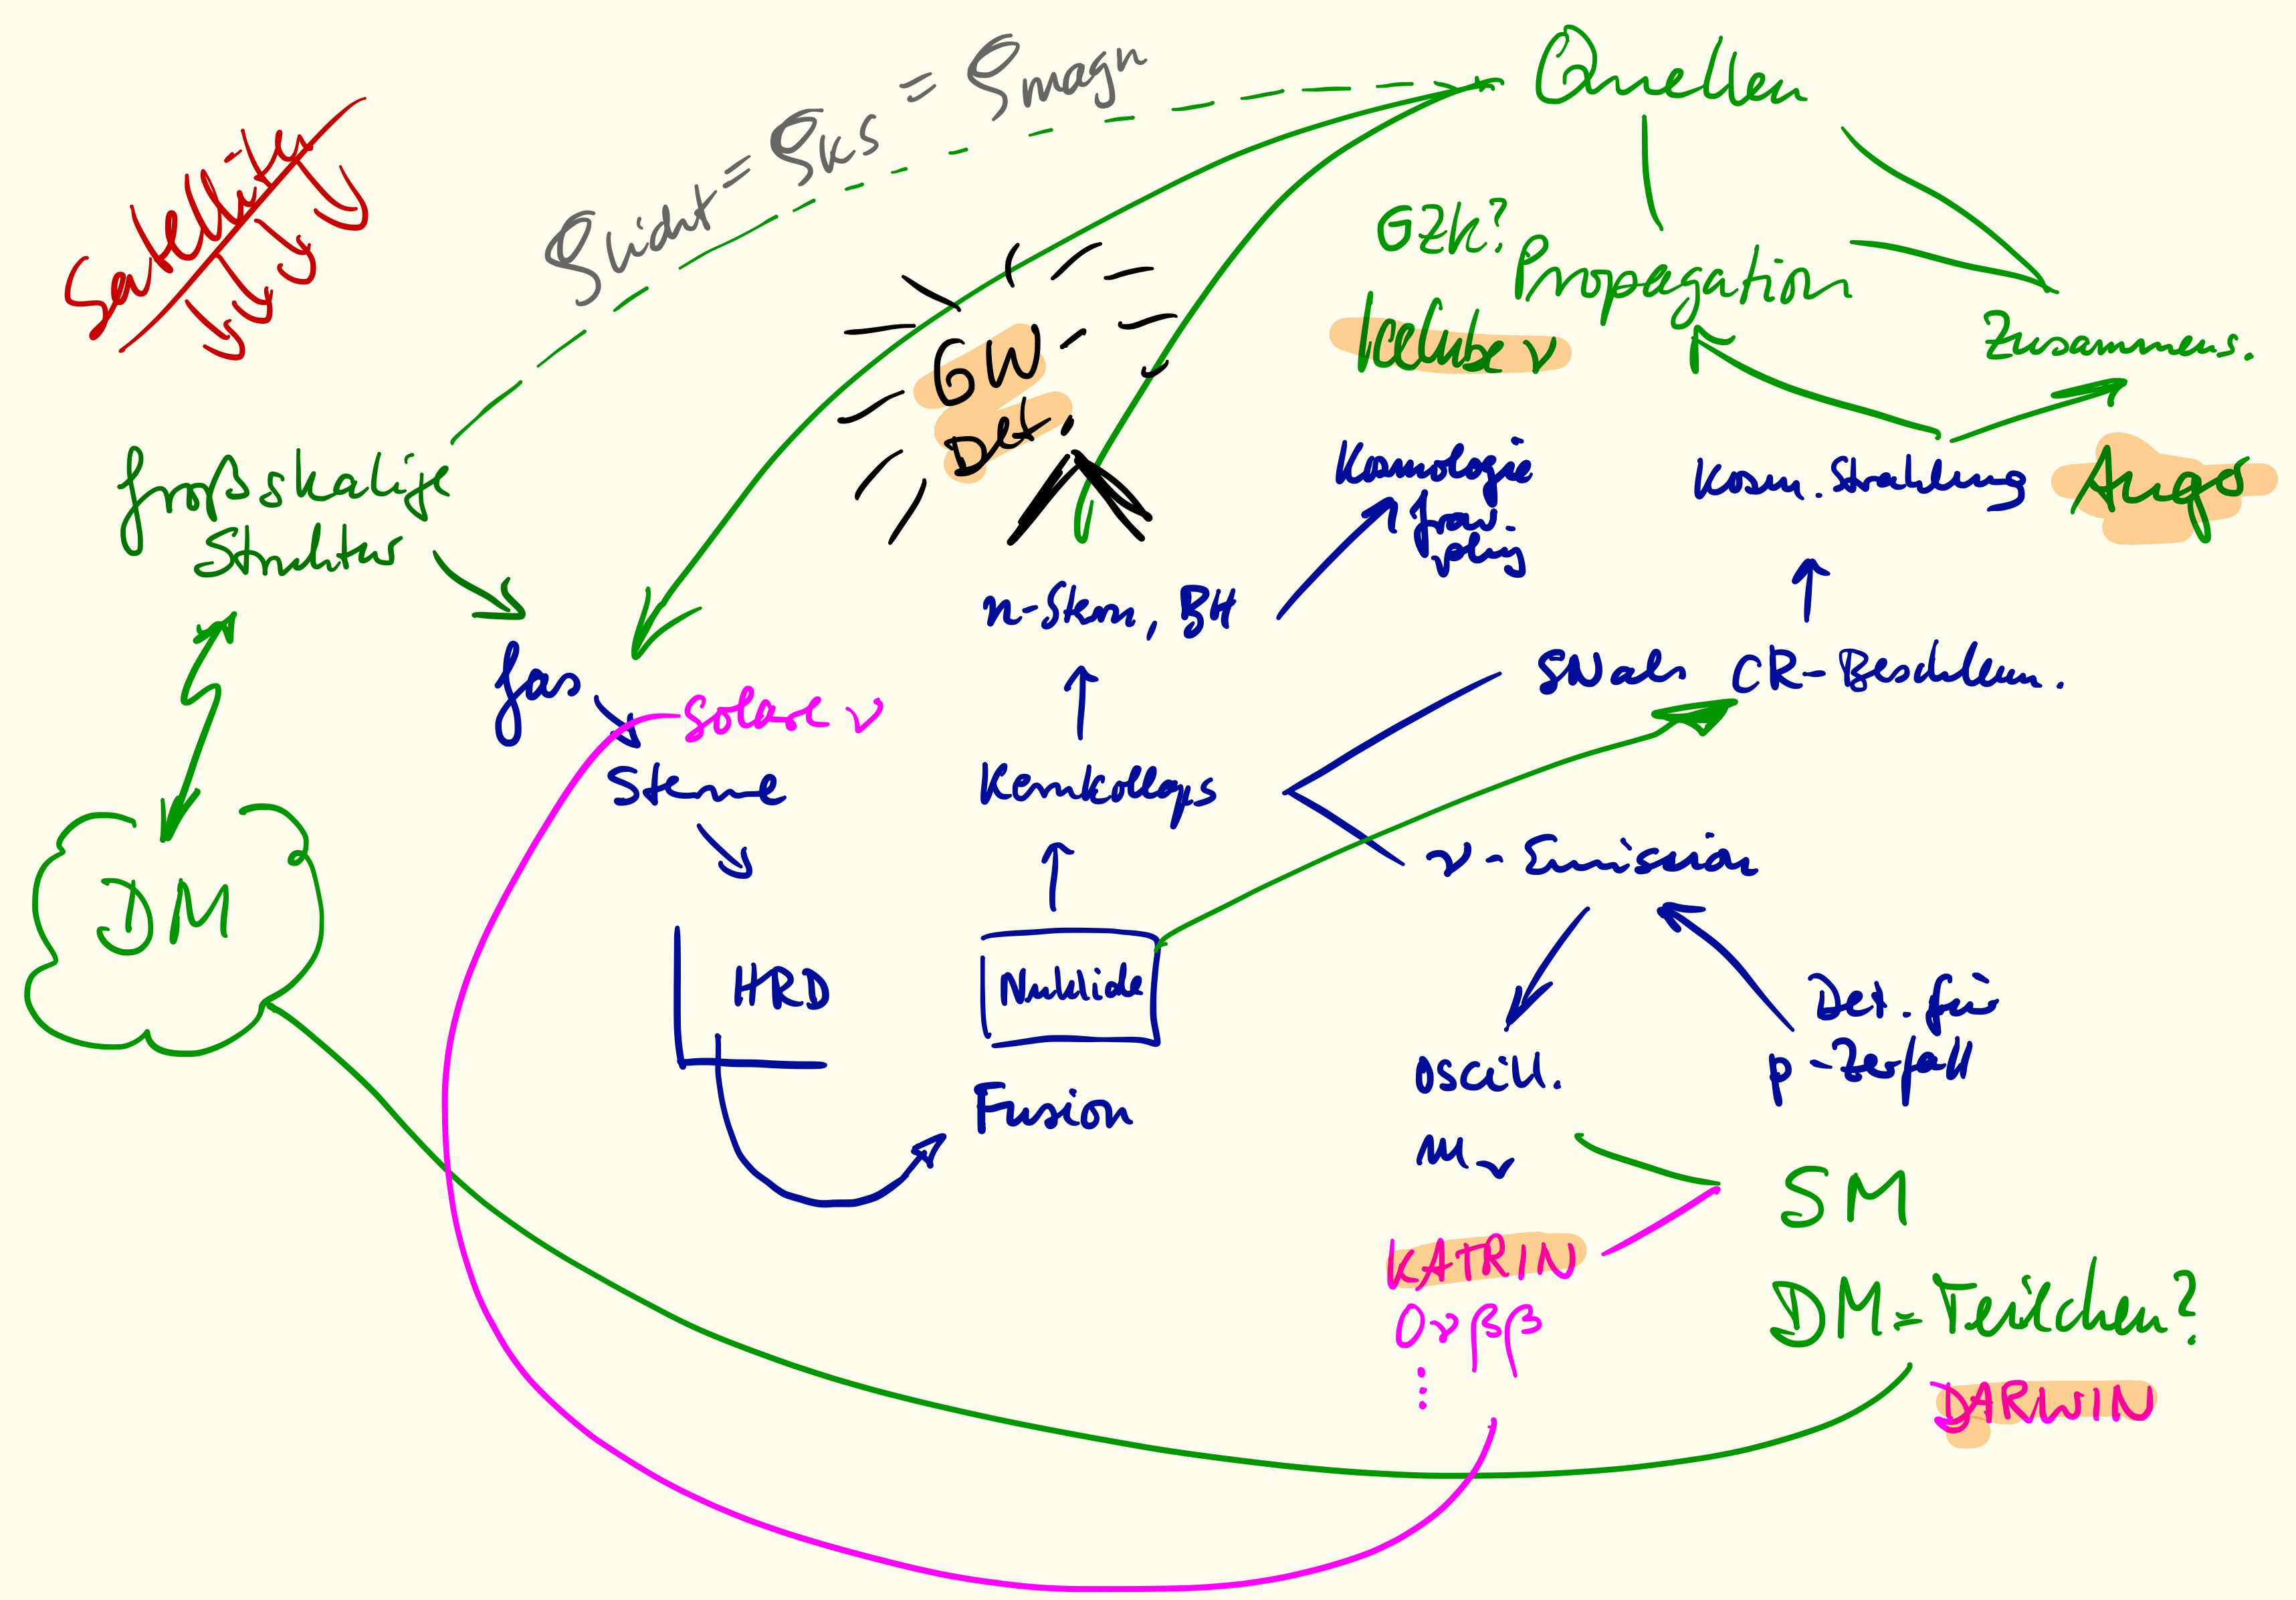 Satellite
ρLicht = ρKS = ρmagn
Quellen
GZK?
Propagation
IceCube ν
Zusammens.
GW
Det.
Großskalige
Struktur
Kosmologie
Grav.
phys
Kosm. Strahlung
Auger
n-Stern, BH
Gas
Solare ν
SN als CR-Beschleun.
Sterne
Kernkollaps
ν-Emission
DM
HRD
Nuklide
Det. für
p-Zerfall
Fusion
Oscill.
mν
SM
KATRIN
0νββ
⋮
DM=Teilchen?
DARWIN